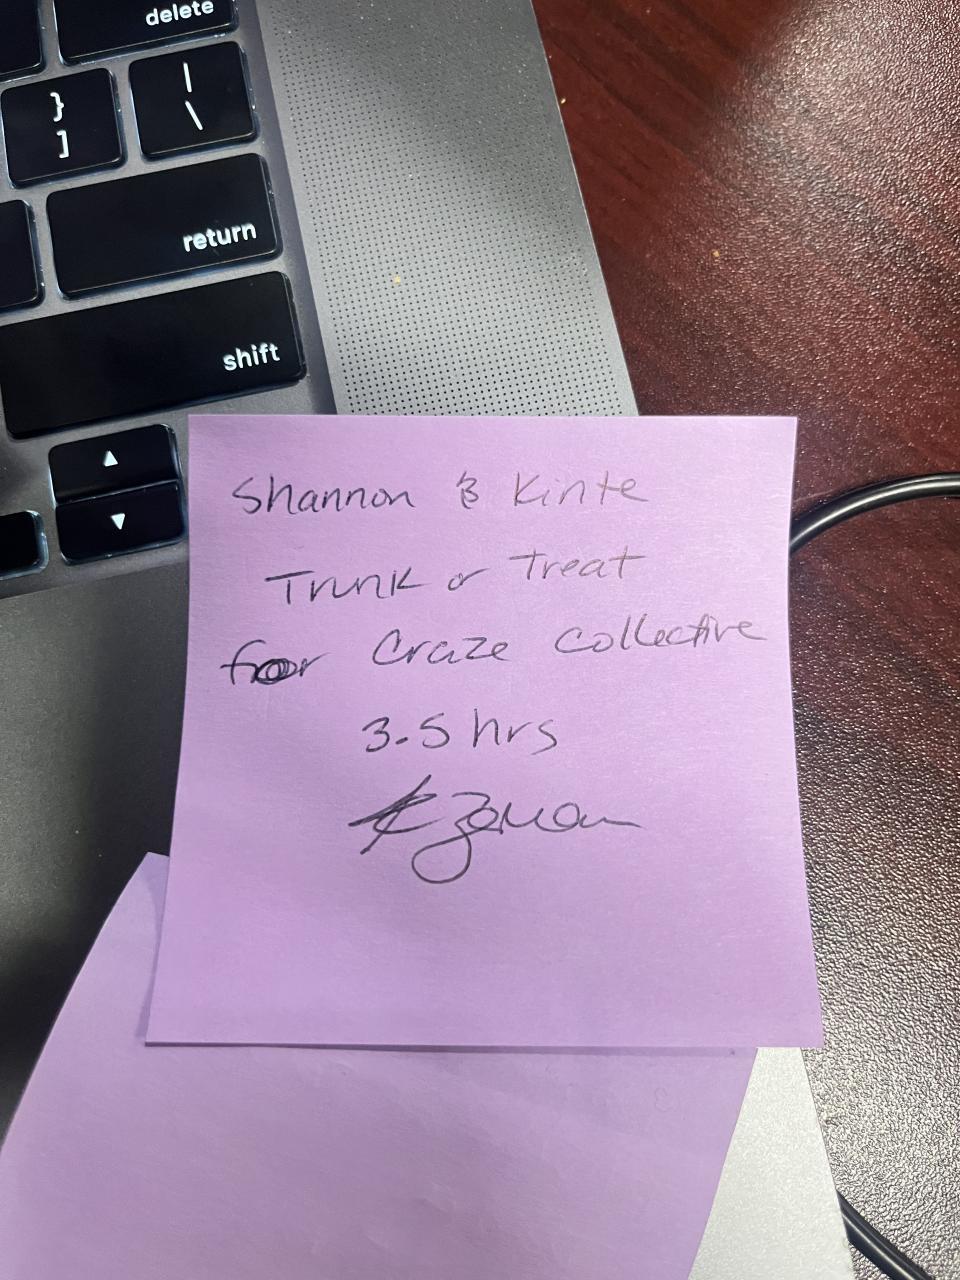 delete
}
]
|
\
return
shift
▲
▼
Shannon & Kinte
Trunk or Treat
for Craze Collective
3.5 hrs